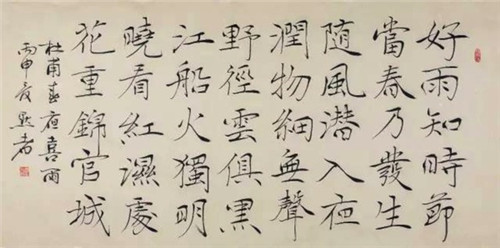 好雨知時節
當春乃發生
隨風潛入夜
潤物細無聲
野徑雲俱黑
江船火獨明
曉看紅濕處
花重錦官城
杜甫春夜喜雨
丙申夏默者